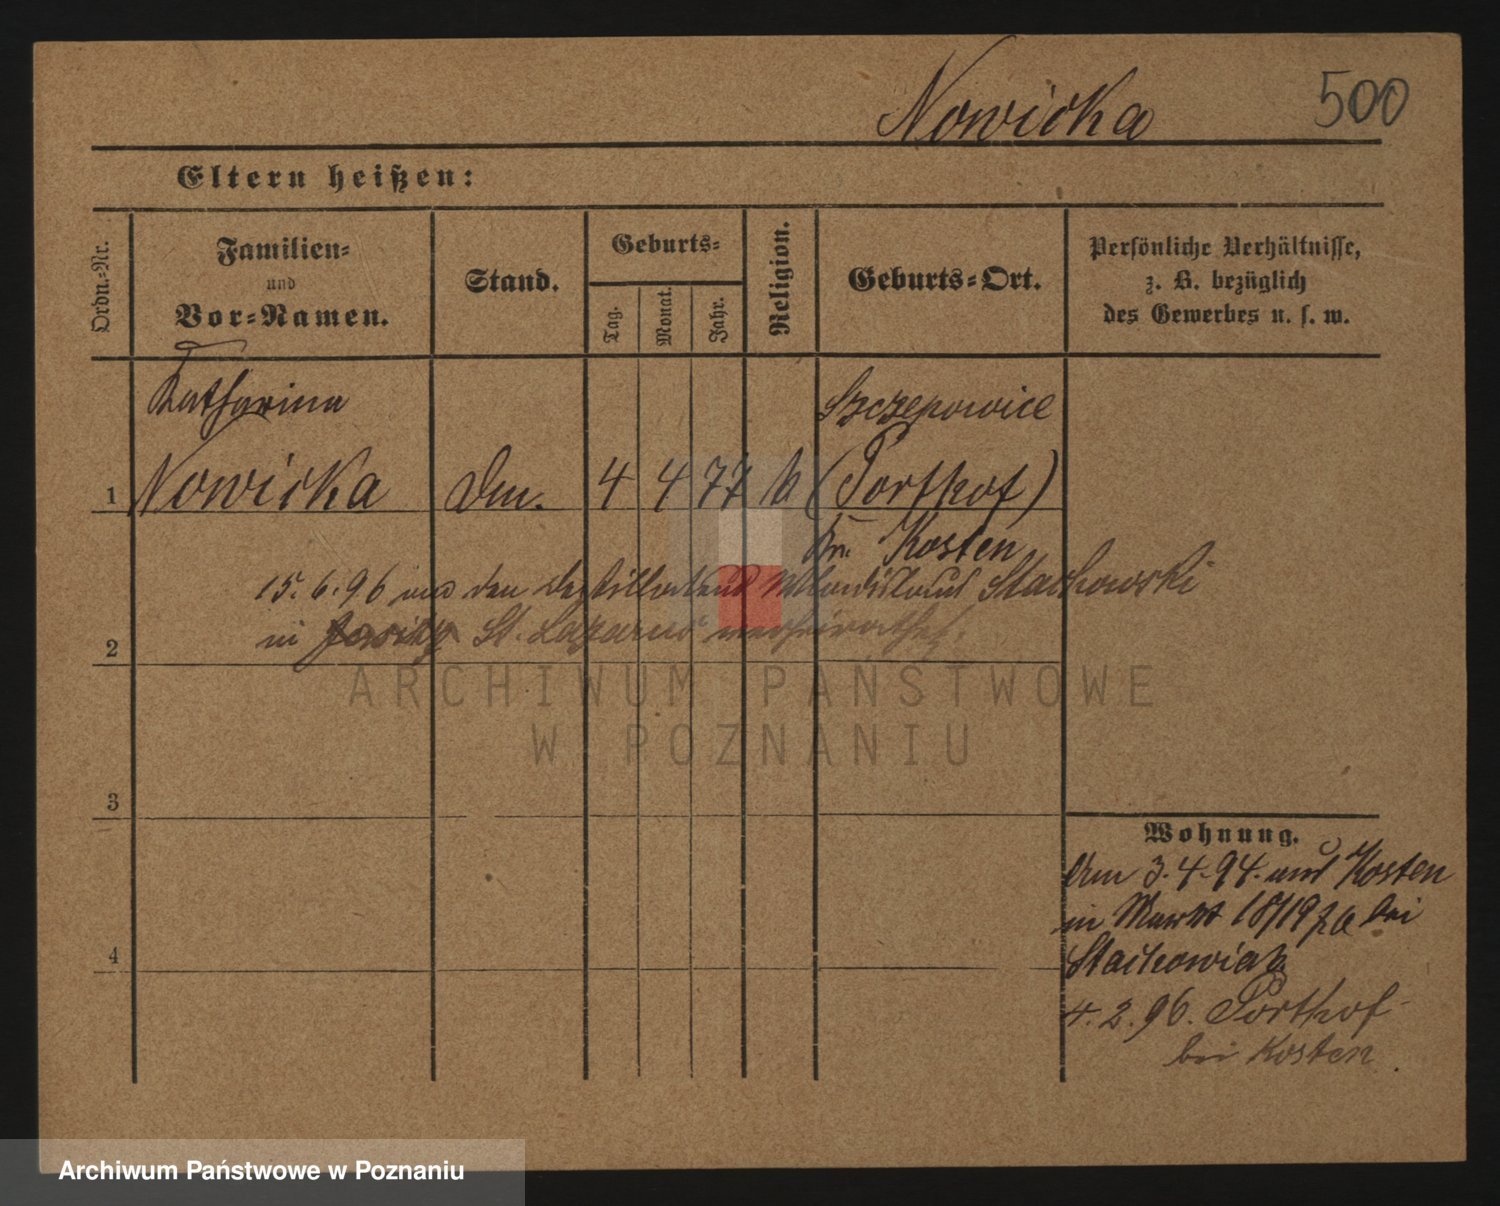 Nowicka
500
Eltern heißen:
Ordn.-Nr.
Familien-
und
Vor-Namen.
Stand.
Geburts-
Tag.
Monat.
Jahr.
Religion.
Geburts-Ort.
Persönliche Verhältnisse,
z. B. bezüglich
des Gewerbes u. s. w.
Katharina
Szczepowice
1 Nowicka 4 4 77 k (Porthof)
Kr. Kosten
15.6.96 mit dem Destillateur Wladislaus Stachowski
2 in St. Lazarus verheirathet.
ARCHIWUM PAŃSTWOWE
W POZNANIU
3
Wohnung.
Am 3.4.94. aus Kosten
in Markt 18/19 bei
Stachowiak
4
4.2.96. Porthof
bei Kosten.
Archiwum Państwowe w Poznaniu